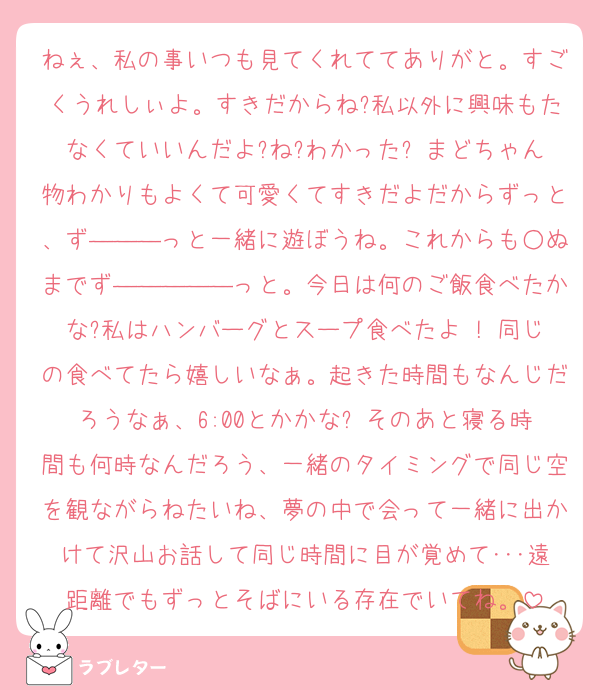 ねぇ、私の事いつも見てくれててありがと。すご
くうれしぃよ。すきだからね?私以外に興味もた
なくていいんだよ?ね?わかった? まどちゃん
物わかりもよくて可愛くてすきだよだからずっと
、ず―――っと一緒に遊ぼうね。これからも〇ぬ
までず―――――っと。今日は何のご飯食べたか
な?私はハンバーグとスープ食べたよ ! 同じ
の食べてたら嬉しいなぁ。起きた時間もなんじだ
ろうなぁ、6:00とかかな? そのあと寝る時
間も何時なんだろう、一緒のタイミングで同じ空
を観ながらねたいね、夢の中で会って一緒に出か
けて沢山お話して同じ時間に目が覚めて･･･遠
距離でもずっとそばにいる存在でいてね。♡
ラブレター